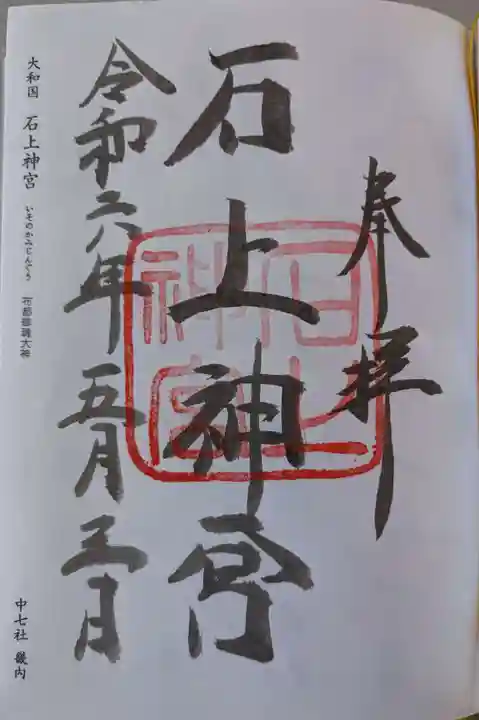 奉拝
石上神宮
石上神宮
令和六年五月三日
大和国 石上神宮 いそのかみじんぐう 布都御魂大神
中七社 畿内